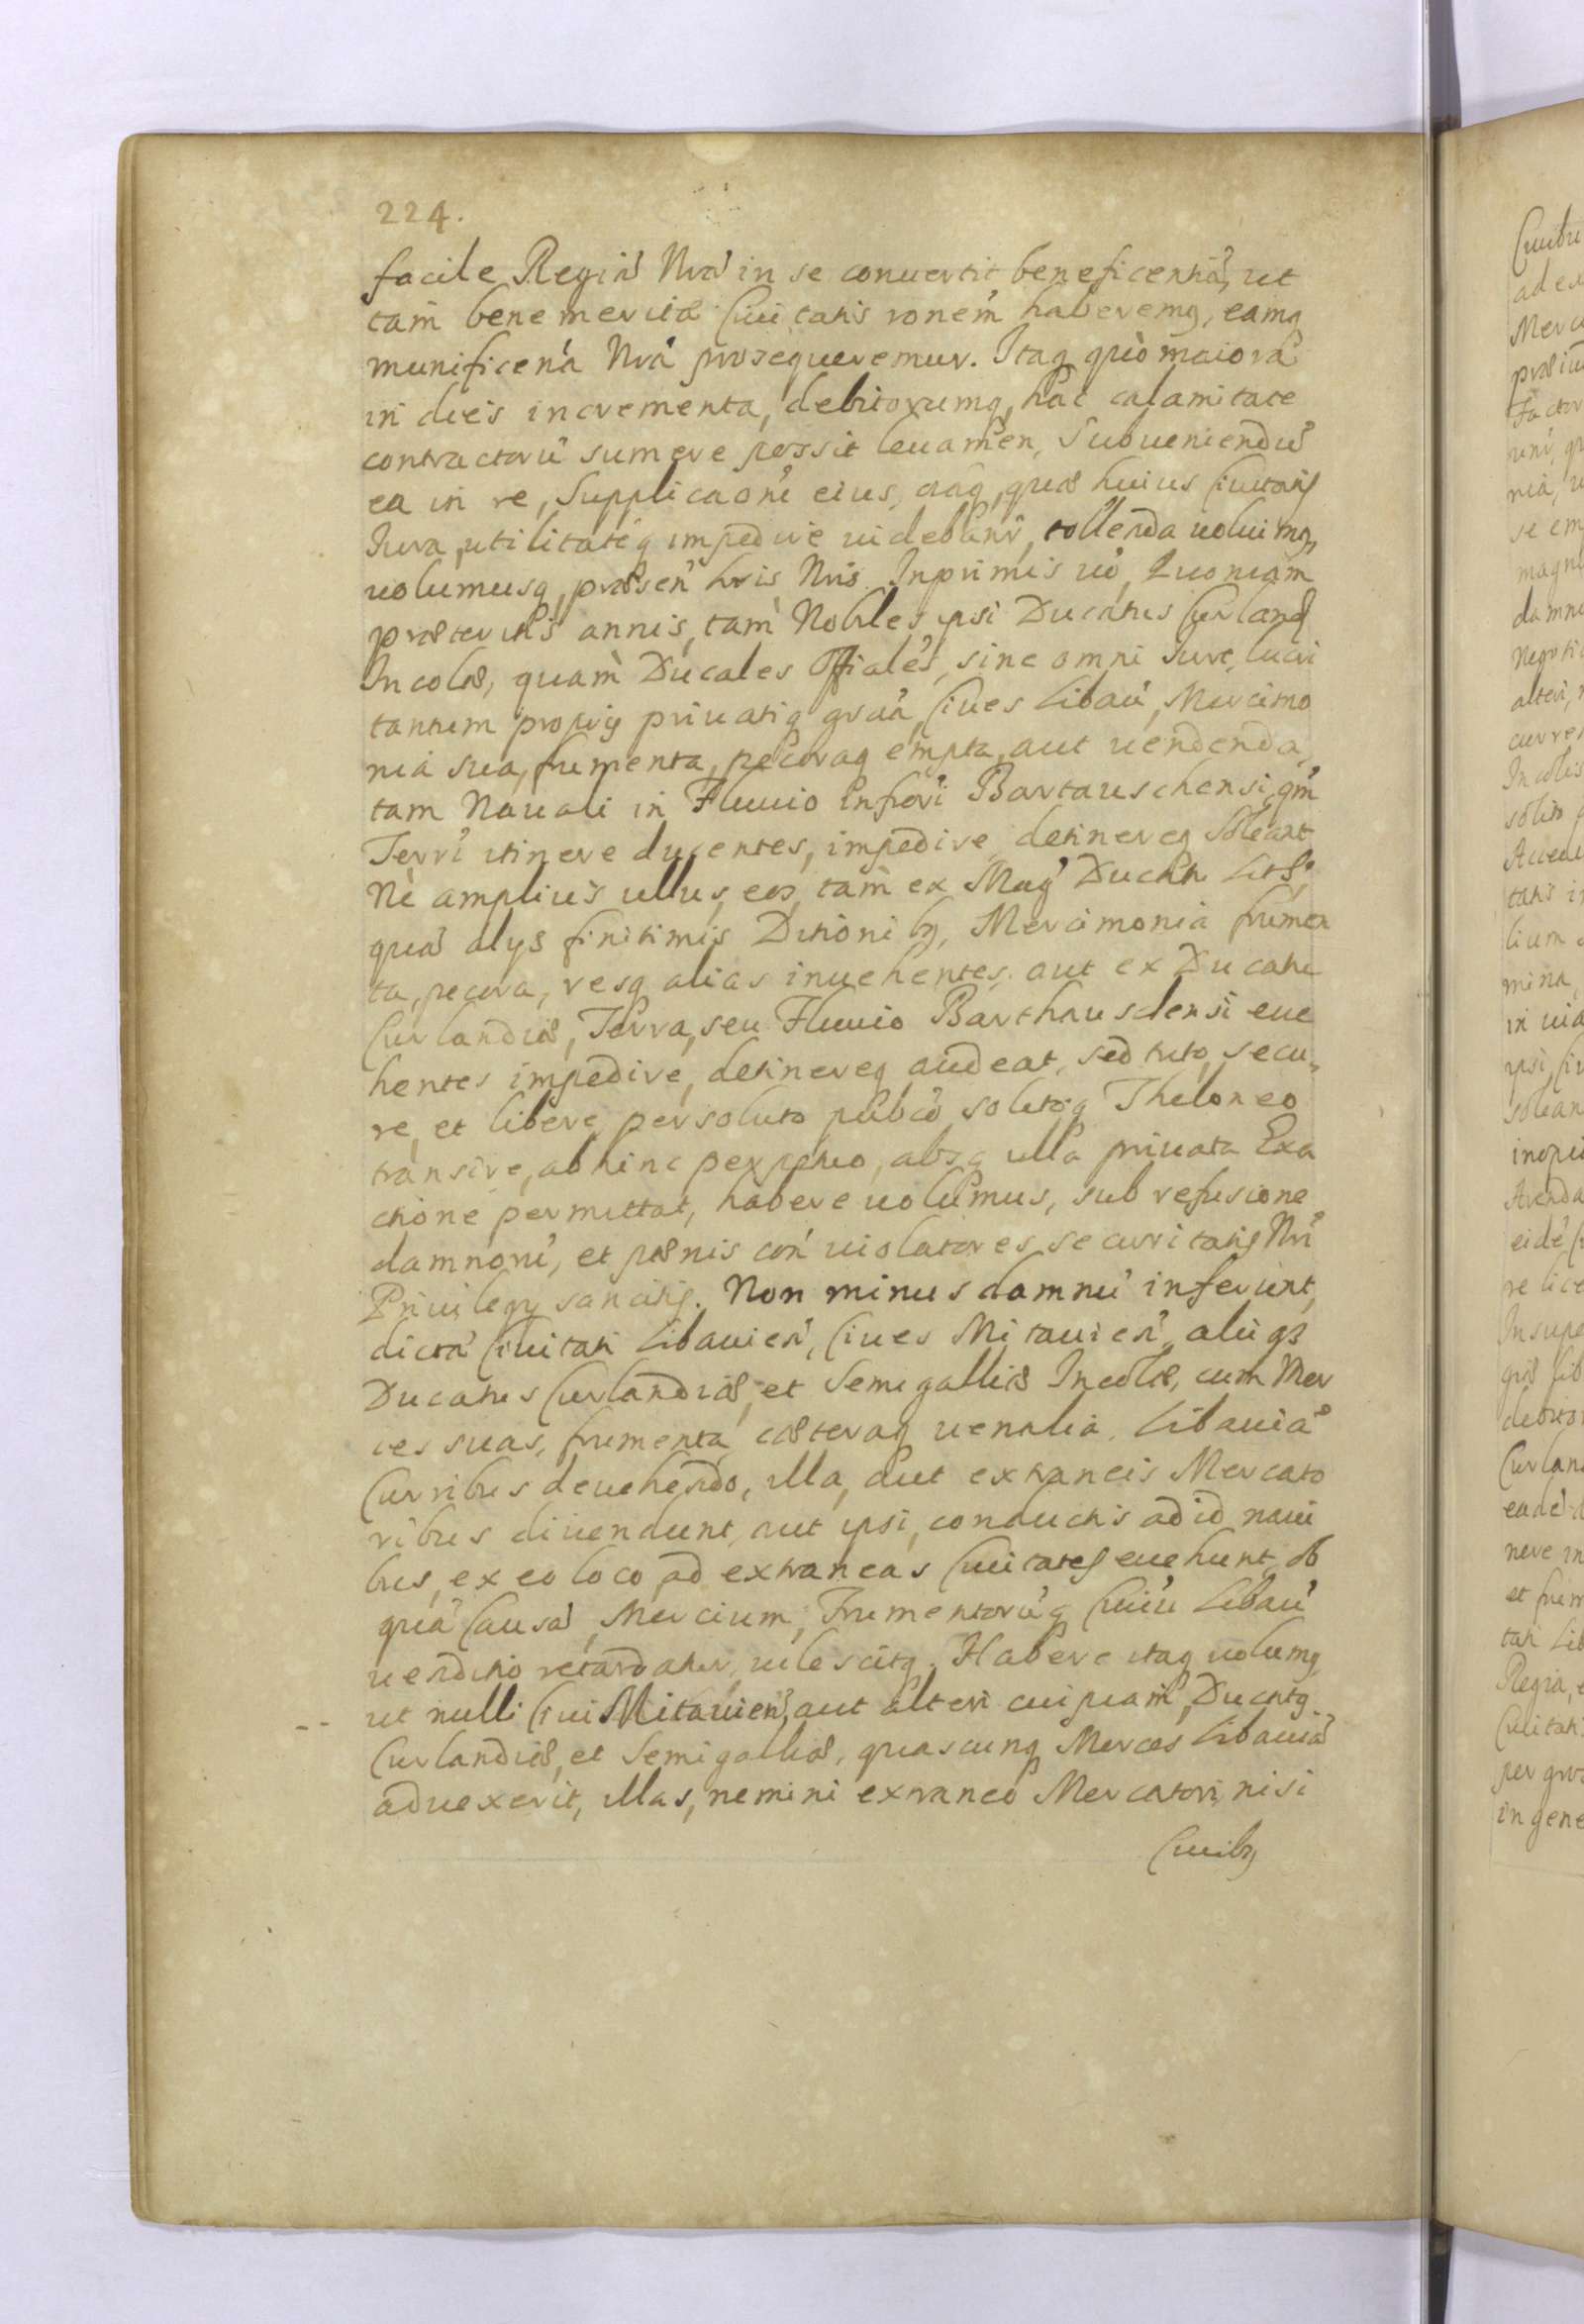 224.
facile Regiã Nrã in se conuertit beneficentiã, ut
tam bene meritæ Ciuitatis ronem haberemq, eamq
munificen̄a Nrã prosequeremur. Itaq quò maiora
in dies incrementa, debitorumq, hac calamitate
contractorũ sumere possit leuamen, Subueniendũ
ea in re, Supplicaoni eius, eaq, quæ huius Ciuitatis
Iura, utilitatẽq impedire uidebant, tollenda uoluimq,
uolumusq, præsen̄ Lris Nris. Inprimis uò, Quoniam
præteritis annis, tam Nobiles ipsi Ducatus Curland
Incolæ, quam Ducales Officiales, sine omni Iure, lucri
tantum proprij priuatiq graã, Ciues Libaũ, Mercimo
nia sua, frumenta, pecoraq empta, aut uendenda,
tam Nauali in Fluuio Inferi Bartauschensi, qm̃
Terri itinere ducentes, impedire, detinereq soleant
Nè amplius ullus, eos, tam ex Mag Ducatu Lith:
quã alys finitimis Ditionibq, Mercimonia frumen
ta, pecora, resq alias inuehentes, aut ex Ducatu
Curlandiæ, Terra, seu Fluuio Barthauschensi eue
hentes impedire, detinereq audeat, sed tuto, secu,,
re, et libere, persoluto publco solitoq Theloneo
transire, abhinc perpetuo, absq ulla priuata Exa
ctione permittat, habere uolumus, sub refusione
damnorũ, et pœnis con̄ uiolatores securitatis Nri
Priuilegy sancitis. Non minus damnũ inferunt,
dictã Ciuitati Libauien̄, Ciues Mitauien̄, alijqs
Ducatus Curlandiæ, et Semigalliæ Incolæ, cum Mer
ces suas, frumenta, cæteraq uenalia, Libauiã
Curribus deuehendo, illa, aut extraneis Mercato
ribus diuendunt, aut ipsi, conductis ad id naui
bus, ex eo loco, ad extraneas Ciuitates euehunt, ob
quã Causã, Mercium, Frumentorũq Ciuiũ Libaũ
uenditio retardatur, uilescitq. Habere itaq uolumq,
-- ut nulli Ciui Mitauien̄, aut alteri cuipiam, Ducatq
Curlandiæ, et Semigalliæ, quascunq Merces Libauiã
aduexerit, illas, nemini extraneo Mercatori, nisi
Ciuibq